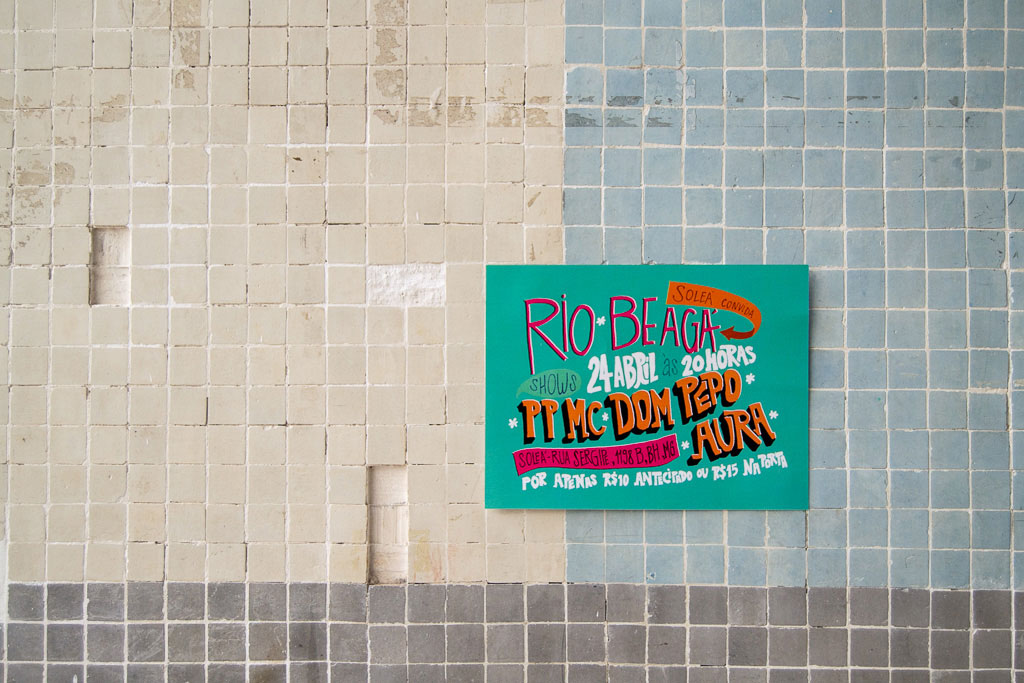 SOLEA CONVIDA
RIO * BEAGÁ
SHOWS 24 ABRIL às 20 HORAS
* PP MC * DOM PEPO *
* AURA *
SOLEA - RUA SERGIPE, 1198 B, BH. MG
POR APENAS R$10 ANTECIPADO OU R$15 NA PORTA